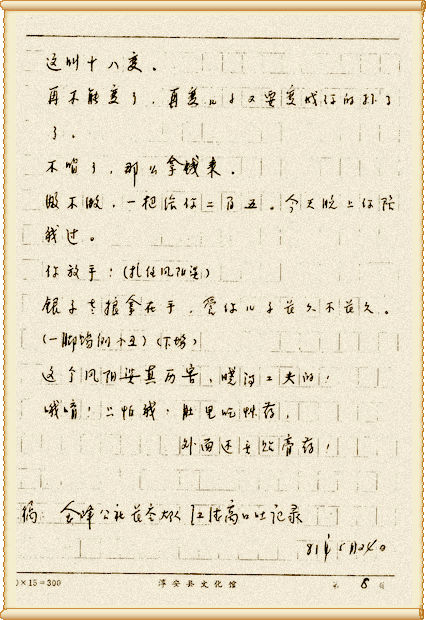 这叫十八变。
再不能变了，再变儿子又要变成你的孙子
了。
不了，那么拿钱来。
做不做，一把给你二百五。今天晚上你陪
我过。
你放手！（扎住凤阳婆）
银子老娘拿在手，管你儿子长久不长久。
（一脚踢倒小丑）（下场）
这个凤阳婆真厉害，晓得工夫的！
哦唷！怕我，肚里吃药，
外面还要贴膏药！
稿 金峰公社大队 江法高口吐记录
81年5月24日
)×15=300 淳安县文化馆 第 8 页